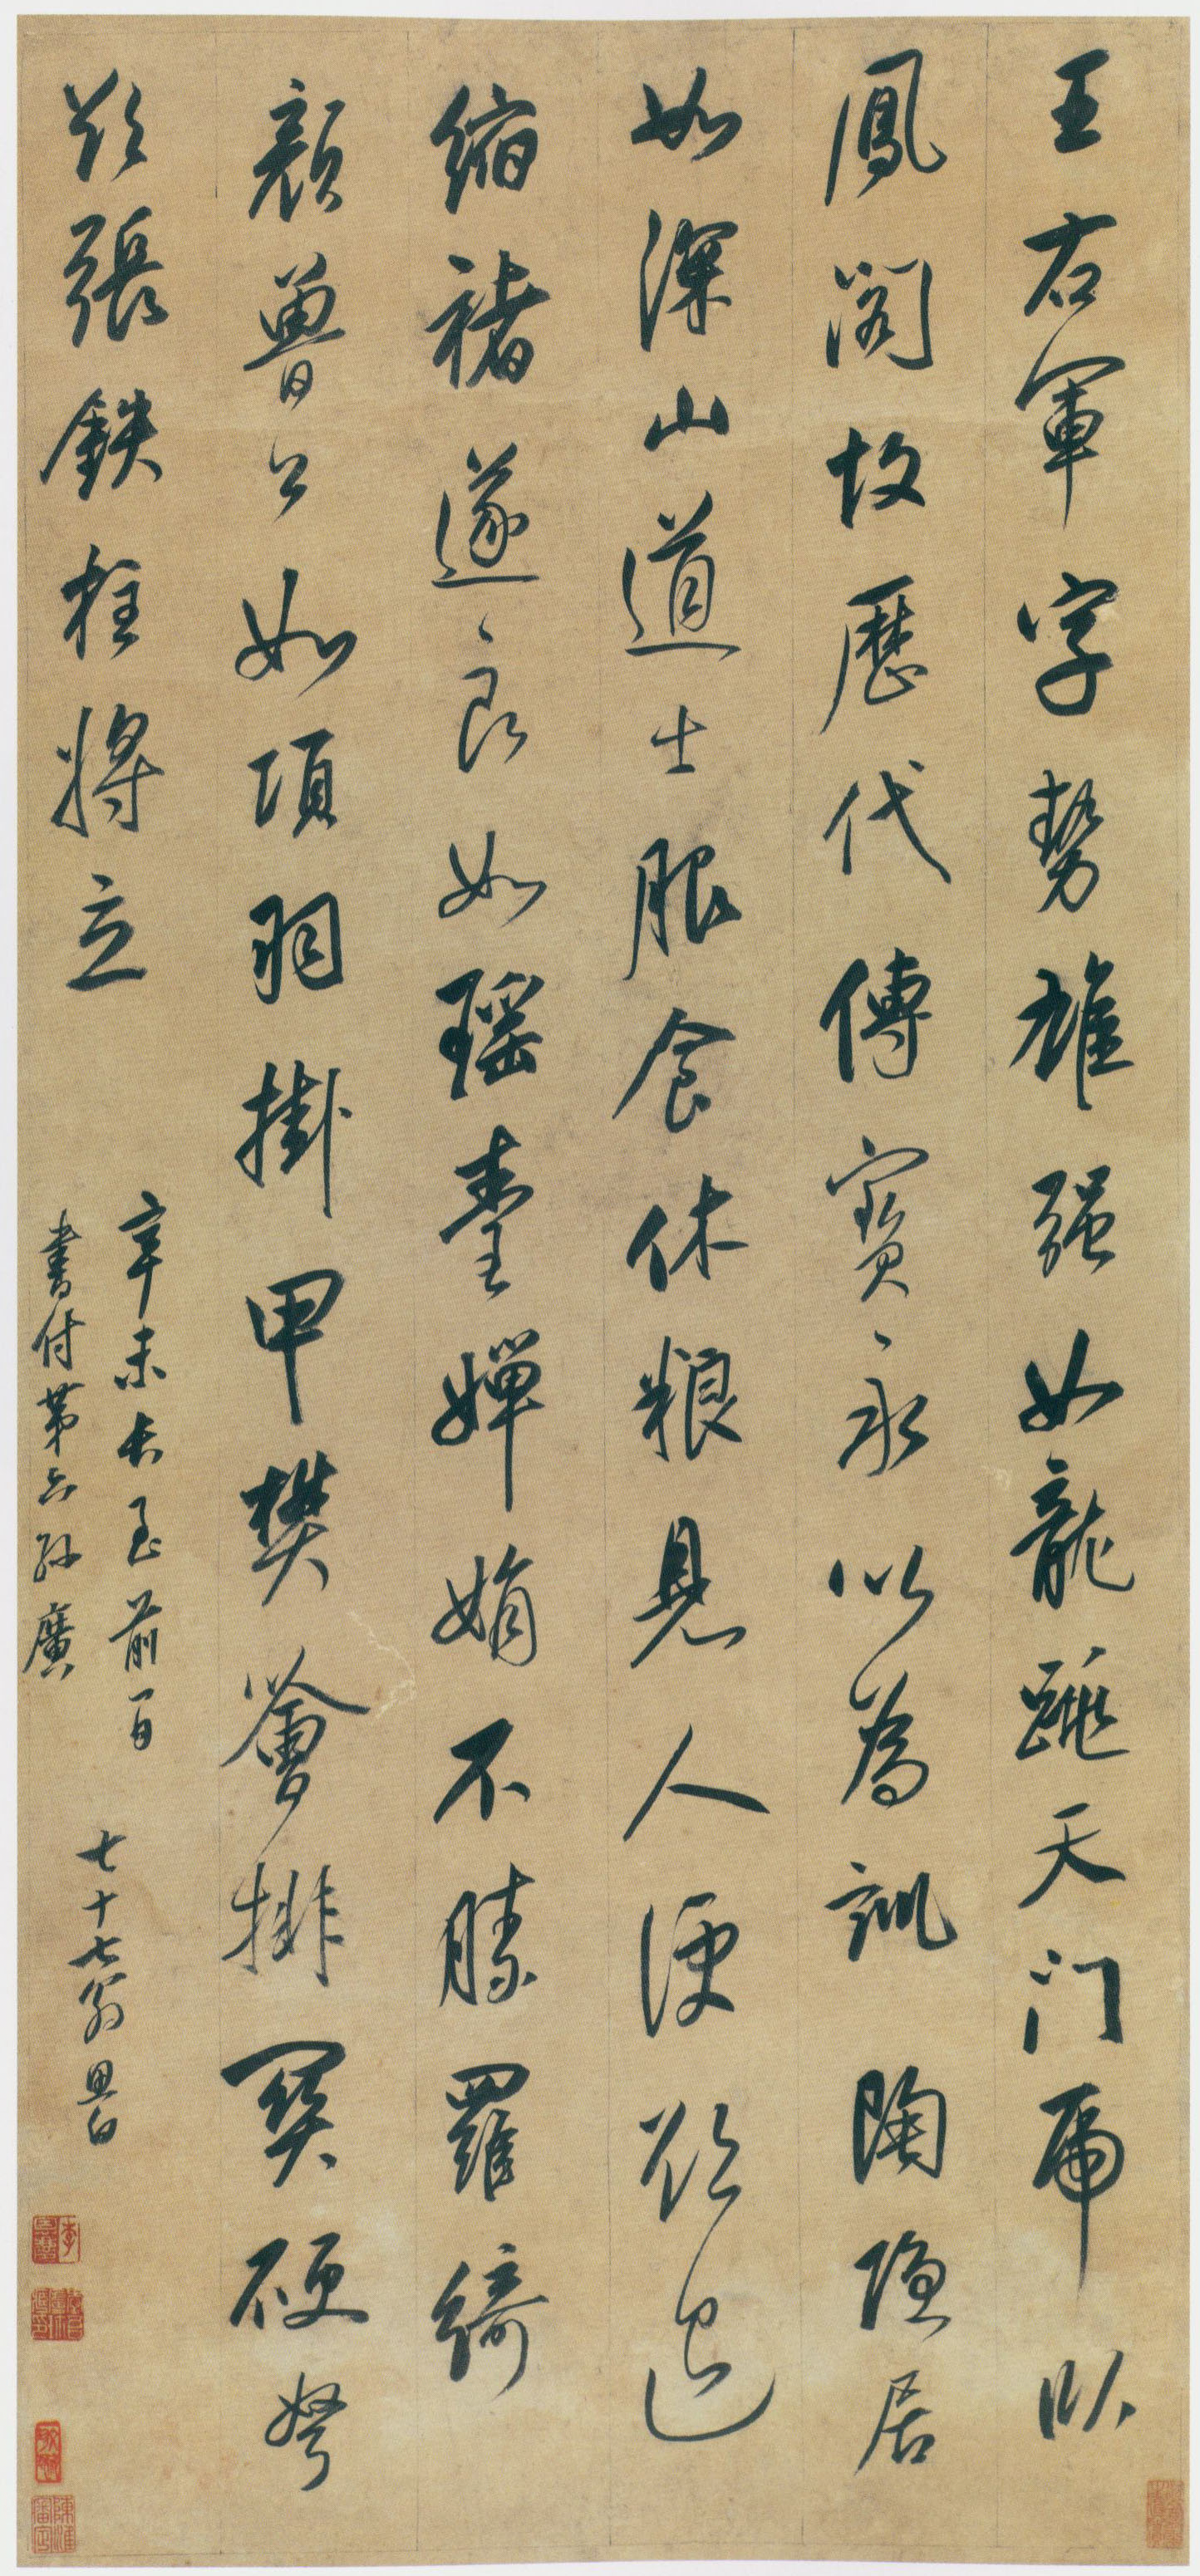 王右軍字勢雄强如龍跳天門虎卧
鳳閣故歷代傳寶永以為訓陶隱居
如深山道士服食休粮見人便欲退
縮褚遂良如瑶臺嬋娟不勝羅綺
顏魯公如項羽掛甲樊噲排突硬弩
欲張鉄柱將立
辛未長至前一日
書付第六孫廣
七十七翁思白